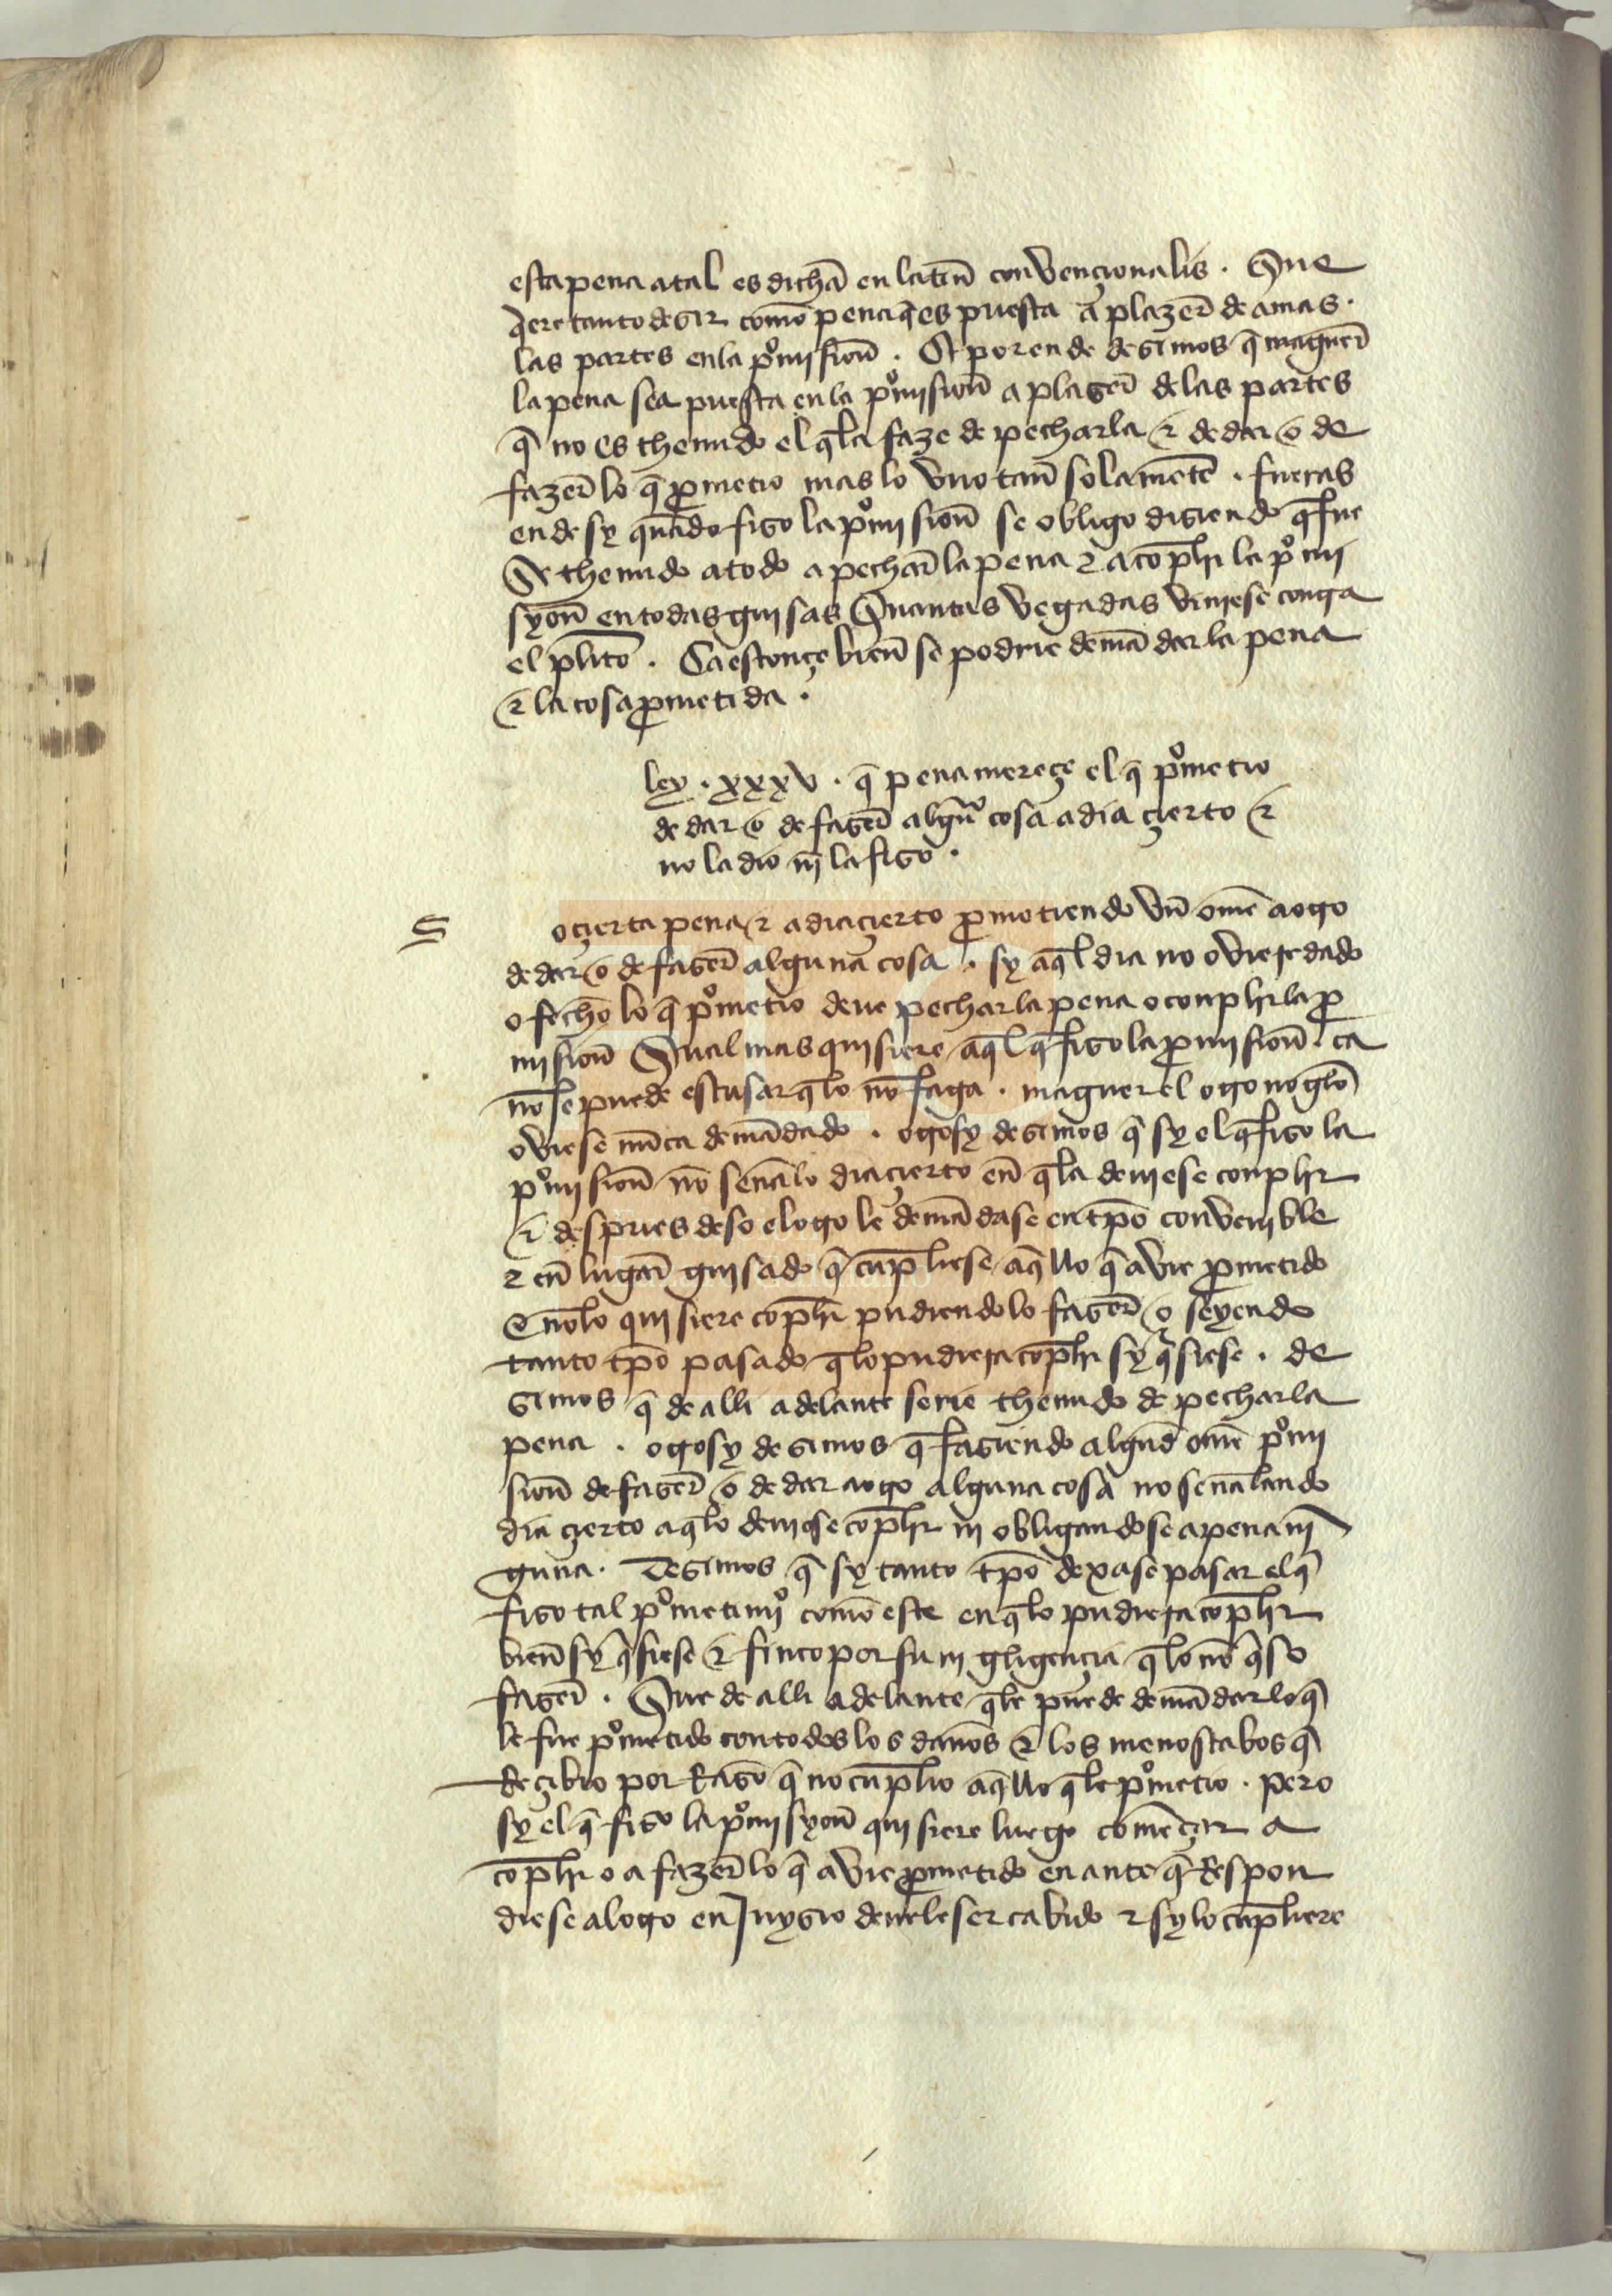 esta pena atal es dichã en latiñ convençionalis . Que
q̃ere tanto desir como pena q̃ es puesta a plazer̃ de amas .
las partes en la pºmisioñ . Et por ende desimos q̃ maguer̃
la pena sea puesta en la pºmisioñ a plaser̃ de las partes
q̃ no es thenudo el q̃ la faze de pecharla & de dar o de
fazer̃ lo q̃ ꝓmetio mas lo vno tañ solamẽte . fueras
ende sy quãdo fiso la pºmisioñ se obligo disiendo q̃ fue
Se thenudo a todo a pechar̃ la pena & a cõplir la pºmi
syoñ en todas guisas Quantas vegadas viniese conga
el plito . Ca estonçe bieñ se podrie demãdar la pena
& la cosa ꝓmetida .
ley . xxxv . q̃ pena mereçe el q̃ pºmetio
de dar o de faser̃ algũº cosa a dia çierto &
no la dio nĩ la fiso .
S
o çierta pena & a dia çierto ꝓmetiendo vñ ome a ogo
de dar o de faser̃ alguna cosa . sy aq̃l dia no oviese dado
o fecho lo q̃ pºmetio deue pechar la pena o conplir la ꝓ
misioñ Qual mas quisiere aq̃l q̃ fiso la ꝓmisioñ . ca
nõ se puede escusar q̃ lo nõ faga . maguer el ogo no gelo
oviese nũca demãdado . ogosy desimos q̃ sy el q̃ fiso la
pºmisioñ nõ señalo dia çierto eñ q̃ la deuiese conplir
& despues deso el ogo le demãdase en tpõ convenible
& eñ lugar̃ guisado q̃ cũpliese aq̃llo q̃ avie ꝓmetido
E nõ lo quisiere cõplir pudiendo lo faser̃ o seyendo
tanto tpõ pasado q̃ lo pudiera cõplir sy q̃siese . de
simos q̃ de alli adelante serie thenudo de pechar la
pena . ogosy desimos q̃ fasiendo algund ome pºmi
sioñ de faser̃ o de dar a ogo alguna cosa no señalando
dia çierto a q̃ lo deuiese cõplir ni obligandose a pena nĩ
guna . Desimos q̃ sy tanto tpõ dexase pasar el q̃
fiso tal pºmetimiº como este en q̃ lo pudiera cõplir
bieñ sy q̃siese & finco por su nigligençia q̃ lo nõ q̃so
faser̃ . Que de alli adelante q̃ le puede demãdar lo q̃
le fue pºmetido con todos los daños & los menoscabos q̃
Reçibio por Rasõ q̃ no cũplio aq̃llo q̃ le pºmetio . pero
sy el q̃ fiso la pºmisyoñ quisiere luego comẽçar a
cõplir o a fazer̃ lo q̃ avie ꝓmetido en ante q̃ Respon
diese al ogo en Juysio deuele ser cabido & sy lo cũpliere